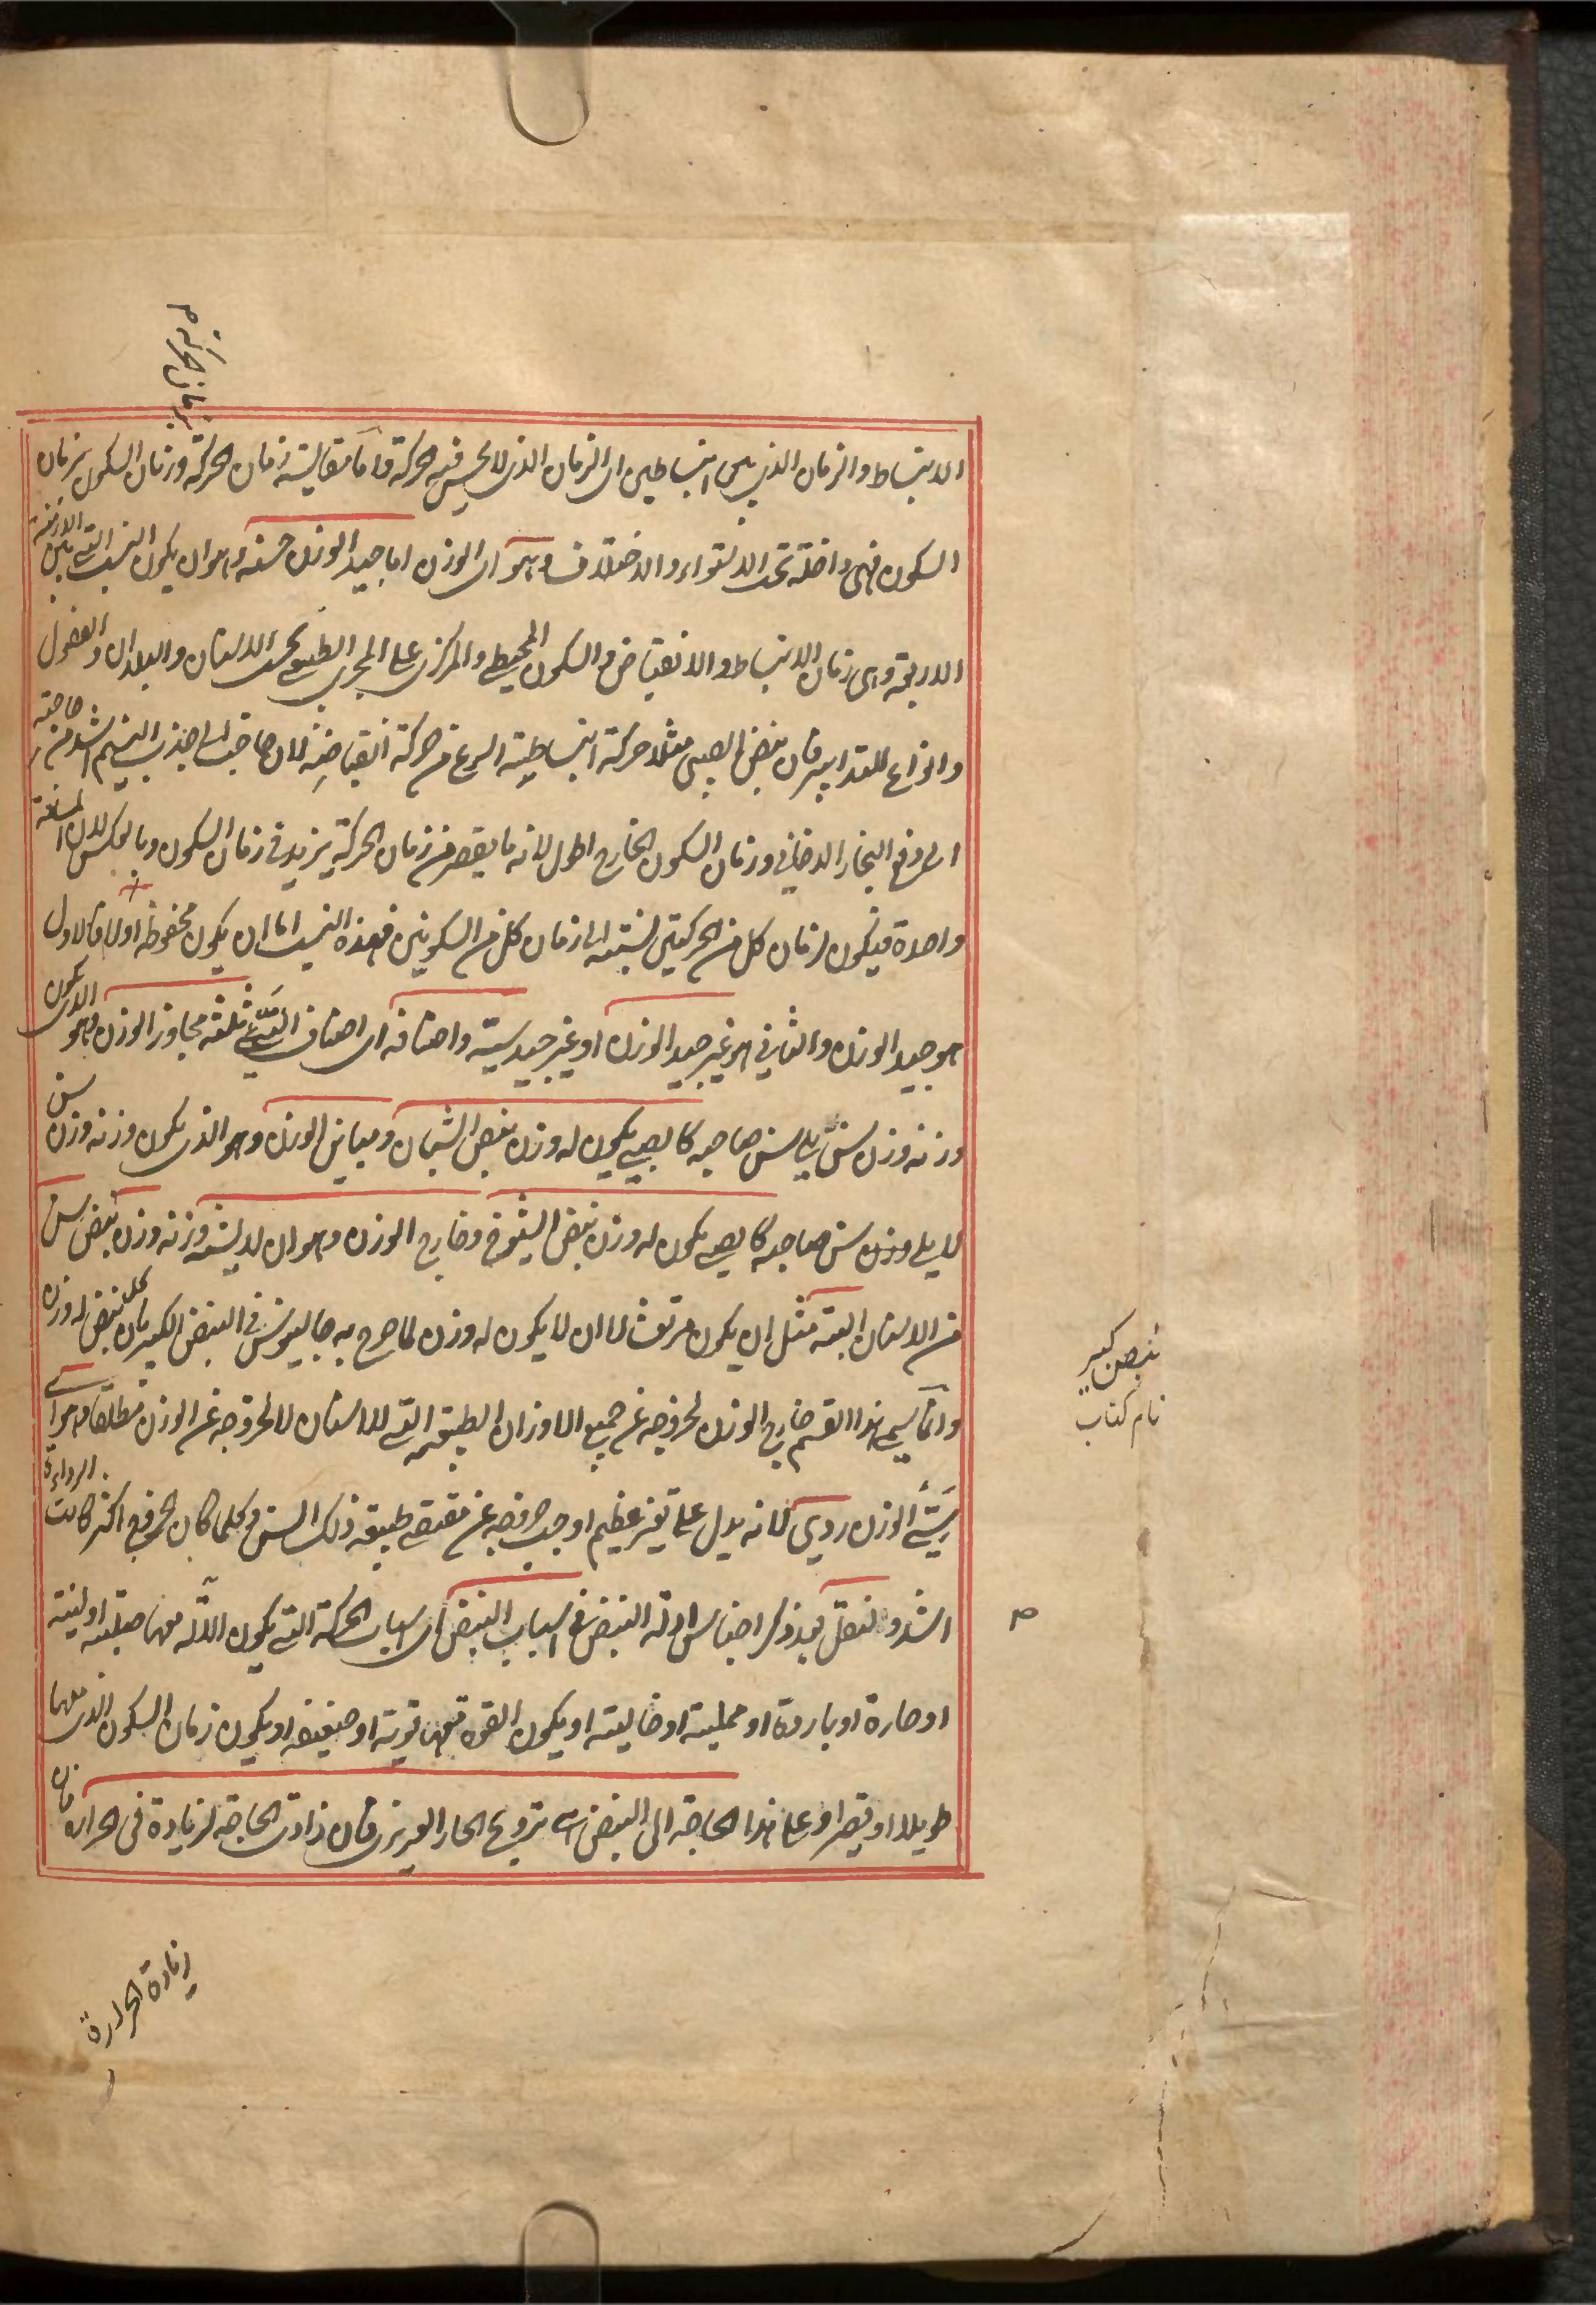 بزمان الحركة م
الانبساط والزمان الذي بين انبساطين اى الزمان الذى لا يحس فيه الحركة واما مقايسة زمان الحركة وزمان السكون بزمان
السكون فهى داخلة تحت الاستواء والاختلاف وهو اى الوزن اما جيد الوزن حسنه وهو ان يكون النسب التے بين الازمنة
الاربعة وهى زمان الانبساط والانقباض والسكون المحيطے والمركزى على المجرى الطبيعے بحسب الاسنان والبلدان والفصول
وانواع التدابير فان نبض الصبى مثلا حركة انبساطية اسرع من حركة انقباضية لان حاجته الى جذب النسيم اشد من حاجته
الى دفع البخار الدخانى وزمان السكون الخارج اطول لانه ما ينقص من زمان الحركة يزيد فى زمان السكون وبالعكس لان المسافة
واحدة فيكون لزمان كل من الحركتين نسبته الى زمان كل من السكونين فهذه النسب اما ان يكون محفوظة اولا فالاول
هو جيد الوزن والثانى هو غير جيد الوزن او غير جيد سيئه واصنافه اى اصناف السيئے ثلثة مجاوز الوزن وهو الذى يكون
وزنه وزن سن يلى سن صاحبه كالصبے يكون له وزن نبض الشبان ومباين الوزن وهو الذى يكون وزنه وزن سن
لا يلى وزن سن صاحبه كالصبے يكون له وزن نبض الشيوخ وخارج الوزن وهو ان لا يشبه وزنه وزن نبض سن
من الاسنان البتة مثل ان يكون مرتعشا لا ان لا يكون له وزن لما صرح به جالينوس فى النبض الكبير بان كل نبض له وزن
وانما سمى هذا القسم خارج الوزن لخروجه عن جميع الاوزان الطبيعية التے للاسنان لا لخروجه عن الوزن مطلقا وهو اے
سيئے الوزن ردى لانه يدل على تغير عظيم اوجب خروجه عن مقتضے طبيعة ذلك السن وكلما كان الخروج اكثر كانت الرداءة
اشد ولنقل بعد ذكر اجناس ادلة النبض فى اسباب النبض اى اسباب الحركة التے يكون الآلة معها صلبة او لينة
او حارة او باردة او ممتلية او خالية او يكون القوة معها قوية او ضعيفة او يكون زمان السكون الذى معها
طويلا او قصيرا وعلى هذا الحاجة الى النبض اے ترويح الحار الغريزى فان زادت الحاجة لزيادة فى الحرارة فان
نبض كبير
نام كتاب
م
زيادة الحرارة